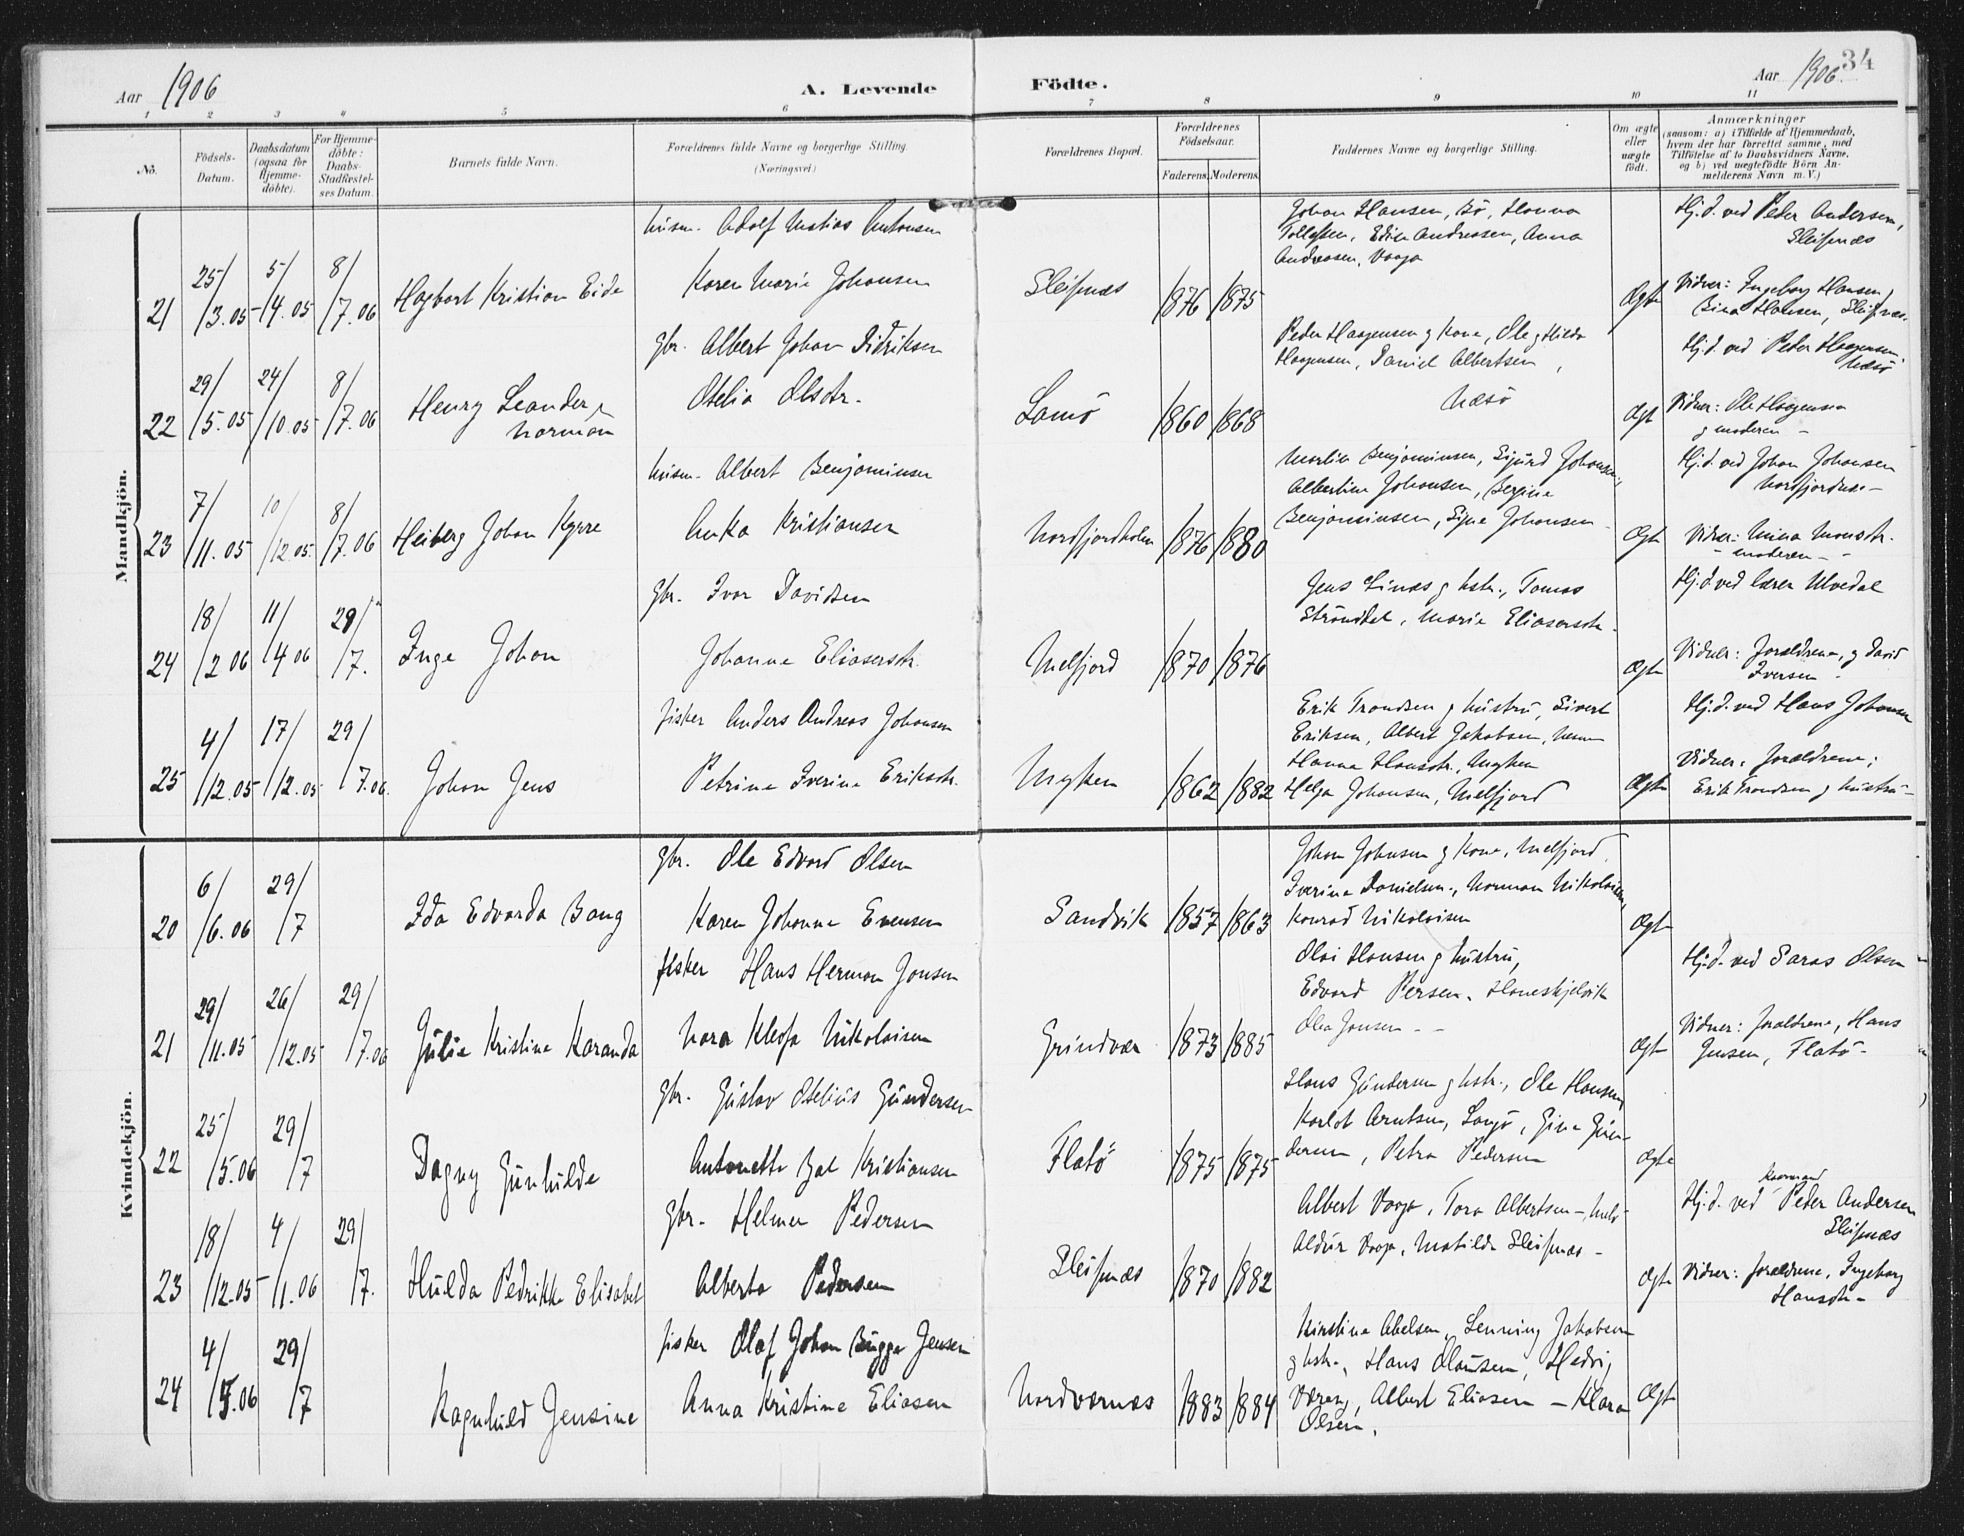 Aar 1906
A. Levende
Födte.
Aar 1906
34
1 2 3 4 5 6 7 8 9 10 11
No.
Födsels-
Datum.
Daabsdatum
(ogsaa for
Hjemme-
döbte).
For Hjemme-
döbte:
Daabs-
Stadfæstel-
ses Datum.
Barnets fulde Navn.
Forældrenes fulde Navne og borgerlige Stilling.
(Næringsvei)
Forældrenes Bopæl.
Forældrenes
Födselsaar.
Faderens. Moderens.
Faddernes Navne og borgerlige Stilling.
Om ægte
eller
uægte
födt.
Anmærkninger
(saasom: a) i Tilfælde af Hjemmedaab,
hvem der har forrettet samme, med
Tilföielse af to Daabsvidners Navne,
og b) ved uægtefödte Börn An-
melderens Navn m. V.)
Mandkjön.
21
25/
/3.05
5/
/4.05
8/
/7.06
Hagbart Kristian Eide
husm. Adolf Matias Antonsen
Karen Marie Johansen
Sleipnæs
1876 1875
Johan Hansen, Bö, Hanna
Tollefsen, Edin Andreasen, Anna
Andreasen, Vaaga
Ægte
Hj.d. ved Peder Andersen,
Sleipnæs
Vidner: Ingeborg Hansen,
Hansen, Sleipnæs.
22
29/
/5.05
24/
/10.05
8/
/7.06
Henry Leander
Norman
gbr. Albert Johan Didriksen
Otelia Olsdtr.
Lamö
1860 1868
Peder Haagensen g Kone, Ole g Hilda
Haagensen, Daniel Albertsen,
Næsö
Ægt
Hj.d. ved Peder Haagensen,
Næsö
Vidner: Ole Haagensen
g moderen –
23
7/
/11.05
10/
/12.05
8/
/7.06
Heiberg Johan Kyrre
husm. Albert Benjaminsen
Anka Kristiansen
Nordfjordholm
1876 1880
Benjaminsen, Sigurd Johansen,
Albertine Johansen, Bergine
Benjaminsen, Signe Johansen
Ægte
Hj.d. ved Johan Johansen
Nordfjordnes –
Vidner: Mina Monsdtr.
– moderen –
24
18/
/2 06
11/
/4 06
29/
/7.
Inge Johan
gbr. Ivar Davidsen
Johanna Eliasersdtr.
Melfjord
1870 1876
Jens Linaes g hstr., Tomas
Stromdal, Marie Eliasersdtr.
Ægte
Hj.d. ved Lærer Ulvedal
Vidner: forældrene, g David
Iversen
25
4/
/12.05
17/
/12.05
29/
/7.06.
Johan Jens
fisker Anders Andreas Johansen
Petrine Iverine Eriksdtr.
Myken
1862 1882
Erik Trondsen g hustru, Sivert
Eriksen, Albert Jakobsen,
Hanna Hansdtr., Myken
Helga Johansen, Melfjord
Ægte
Hj.d. ved Hans Johansen
Vidner: forældrene;
Erik Trondsen g hustru –
Kvindekjön.
20
6/
/6.06
29/
/7
Ida Edvarda Bang
gbr. Ole Edvard Olsen
Karen Johanna Evensen
Sandvik
1857 1863
Johan Johnsen g Kone, Melfjord.
Iverine Danielsen., Norman Nikolaisen,
Konrad Nikolaisen
Ægte
21
29/
/11.05
26/
/12.05
29/
/7.06
Julie Kristine Karanda
fisker Hans Herman Jensen
Nora Kleofa Nikolaisen
Grindvær
1873 1885
Olai Hansen g hustru,
Edvard Persen, Haneskjelvik
Olea Jensen – –
Ægte
Hj.d. ved Saras Olsen –
Vidner: forældrene, Hans
Jensen, Flatö –
22
25/
/5.06
29/
/7
Dagny Gunhilde
gbr. Gustav Otelius Gundersen
Antonette Kristiansen
Flatö
1875 1875
Hans Gundersen g hstr., Ole Hansen,
Karlot Arntsen, Gina Gun-
dersen, Petra Pedersen
Ægte
23
18/
/12.05
4/
/1.06
29/
/7.
Hulda Pedrikke Elisabet
gbr. Helmer Pedersen
Alberta Pedersen
Sleipnæs
1870 1882
Albert Vaaga, Tora Albertsen –
Aldur Vaaga, Matilde Sleipnæs –
Ægte
Hj.d. ved Peder Andersen
Sleipnæs
Vidner: forældrene, Ingeborg
Hansdtr –
24
4/
/5.06
29/
/7
Ragnhild Jensine
fisker Olaf Johan Bugge Jensen
Anna Kristine Eliasen
Nordværnæs
1883 1884
Kirstine Abelsen, Lenning Jakobsen
g hstr., Hans Olausen, Hedvig
Værang, Albert Eliasen – Klara
Olsen.
Ægte